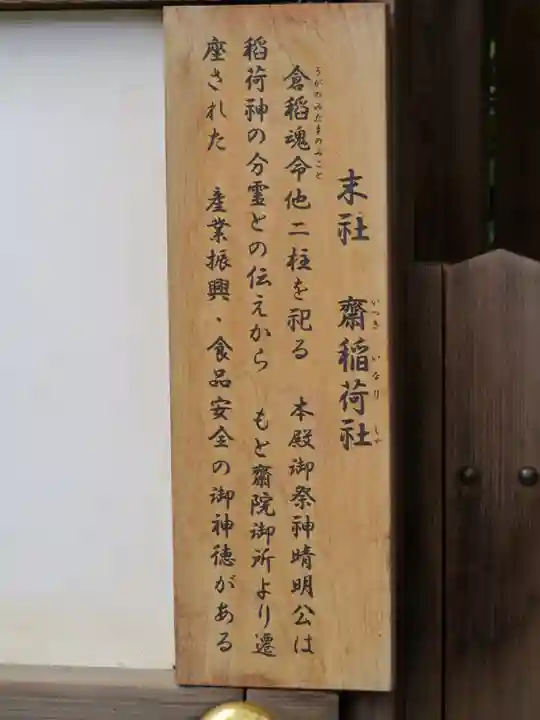 末社 齋稲荷社
いつき いなり しゃ
倉稲魂命他二柱を祀る 本殿御祭神晴明公は
うがのみたまのみこと
稻荷神の分霊との伝えから もと齋院御所より遷
座された 産業振興、食品安全の御神徳がある